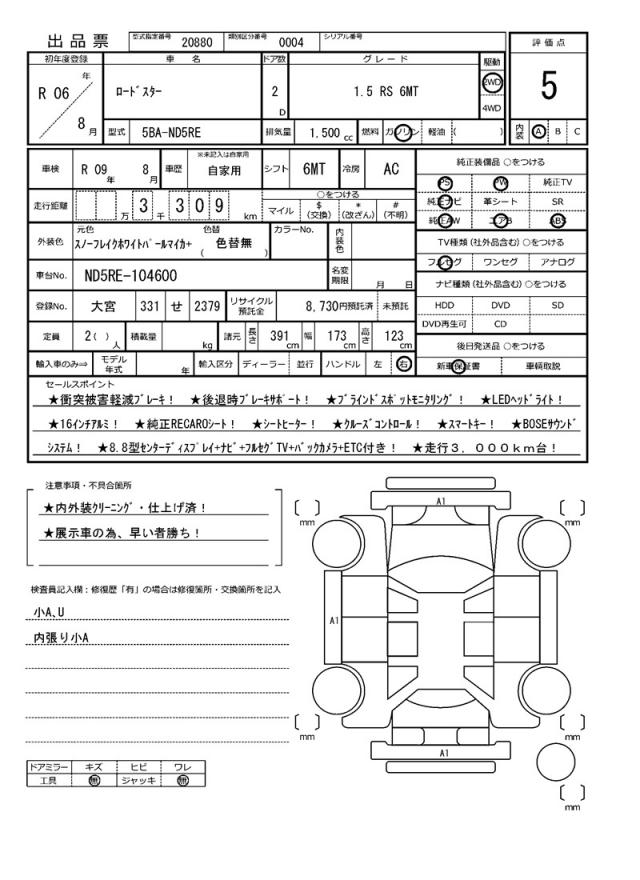 出品票 型式指定番号 20880 類別区分番号 0004 シリアル番号
評価点
初年度登録 車名 ドア数 グレード 駆動
R 06 年 8 月 ﾛｰﾄﾞｽﾀｰ 2 D 1.5 RS 6MT 2WD 4WD
5
型式 5BA-ND5RE 排気量 1,500 cc 燃料 ガソリン 軽油 ( )
内装 A B C
車検 R 09 年 8 月 車歴 ※未記入は自家用 自家用 シフト 6MT 冷房 AC
純正装備品 ○をつける
PS PW 純正TV
純正ナビ 革シート SR
純正AW エアB ABS
走行距離 万 3 千 3 0 9 km
○をつける
マイル $(交換) *(改ざん) #(不明)
外装色 元色 ｽﾉｰﾌﾚｲｸﾎﾜｲﾄﾊﾟｰﾙﾏｲｶ+ 色替 ( 色替無 ) カラーNo. 内装色
TV種類 (社外品含む) ○をつける
フルセグ ワンセグ アナログ
車台No. ND5RE-104600 名変期限 月 日
ナビ種類 (社外品含む) ○をつける
HDD DVD SD
DVD再生可 CD
登録No. 大宮 331 せ 2379 リサイクル預託金 8,730円預託済 未預託
定員 2( ) 人 積載量 kg 諸元 長さ 391 cm 幅 173 cm 高さ 123 cm
後日発送品 ○をつける
新車保証書 車輌取説
輸入車のみ⇒ モデル年式 年 輸入区分 ディーラー 並行 ハンドル 左 右
セールスポイント
★衝突被害軽減ﾌﾞﾚｰｷ！ ★後退時ﾌﾞﾚｰｷｻﾎﾟｰﾄ！ ★ﾌﾞﾗｲﾝﾄﾞｽﾎﾟｯﾄﾓﾆﾀﾘﾝｸﾞ！ ★LEDﾍｯﾄﾞﾗｲﾄ！
★16インチアルミ！ ★純正RECAROシート！ ★シートヒーター！ ★ｸﾙｰｽﾞｺﾝﾄﾛｰﾙ！ ★スマートキー！ ★BOSEｻｳﾝﾄﾞ
システム！ ★8.8型ｾﾝﾀｰﾃﾞｨｽﾌﾟﾚｲ+ﾅﾋﾞ+ﾌﾙｾｸﾞTV+ﾊﾞｯｸｶﾒﾗ+ETC付き！ ★走行３，０００ｋｍ台！
注意事項・不具合箇所
★内外装ｸﾘｰﾆﾝｸﾞ・仕上げ済！
★展示車の為、早い者勝ち！
検査員記入欄：修復歴「有」の場合は修復箇所・交換箇所を記入
小A,U
内張り小A
ドアミラー キズ ヒビ ワレ
工具 無 ジャッキ 無
A1
[ ] mm [ ] mm
A1
[ ] mm [ ] mm
A1
[ ] mm